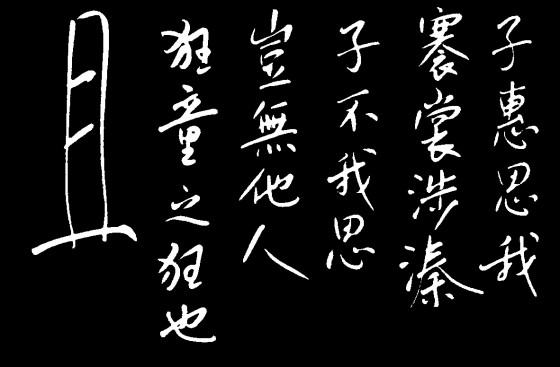 子惠思我
褰裳涉溱
子不我思
豈無他人
狂童之狂也
且